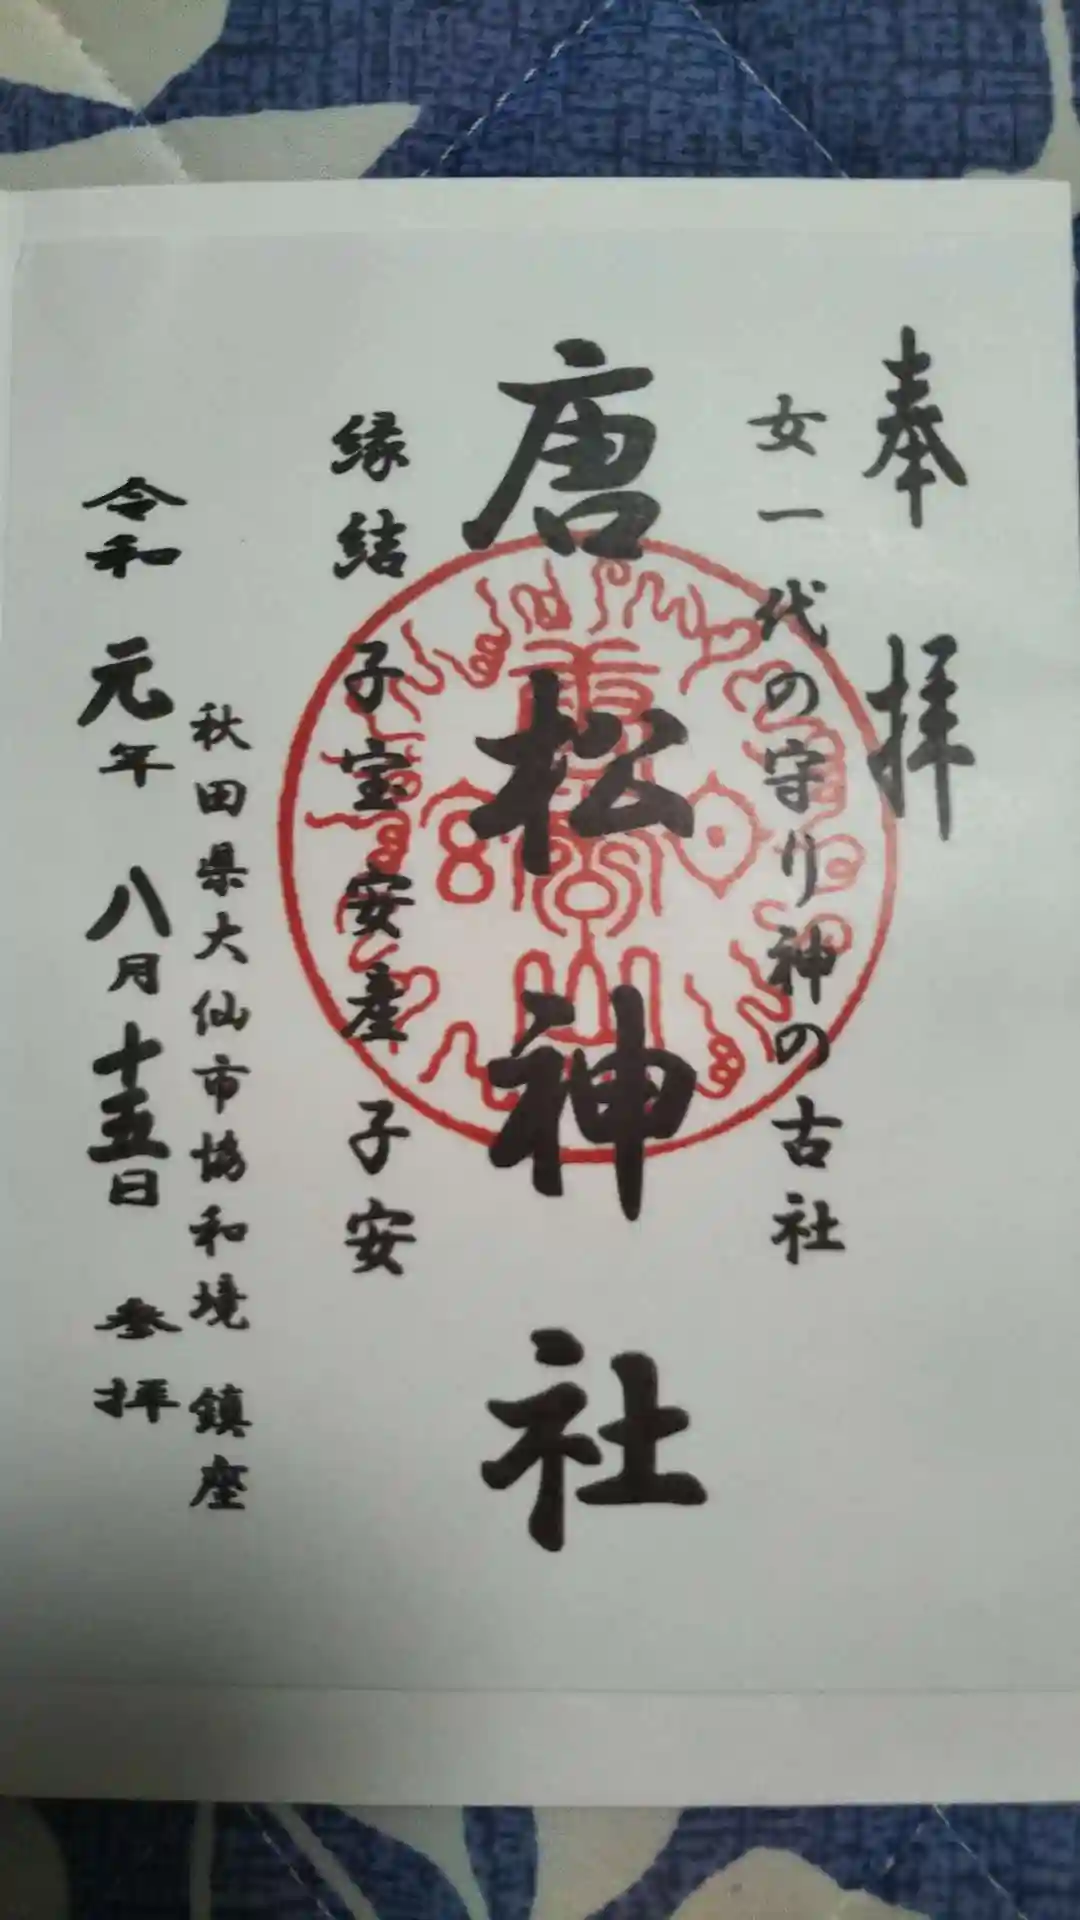 奉拝
女一代の守り神の古社
唐松神社
縁結 子宝 安産 子安
秋田県大仙市協和境 鎮座
令和元年八月十五日 参拝